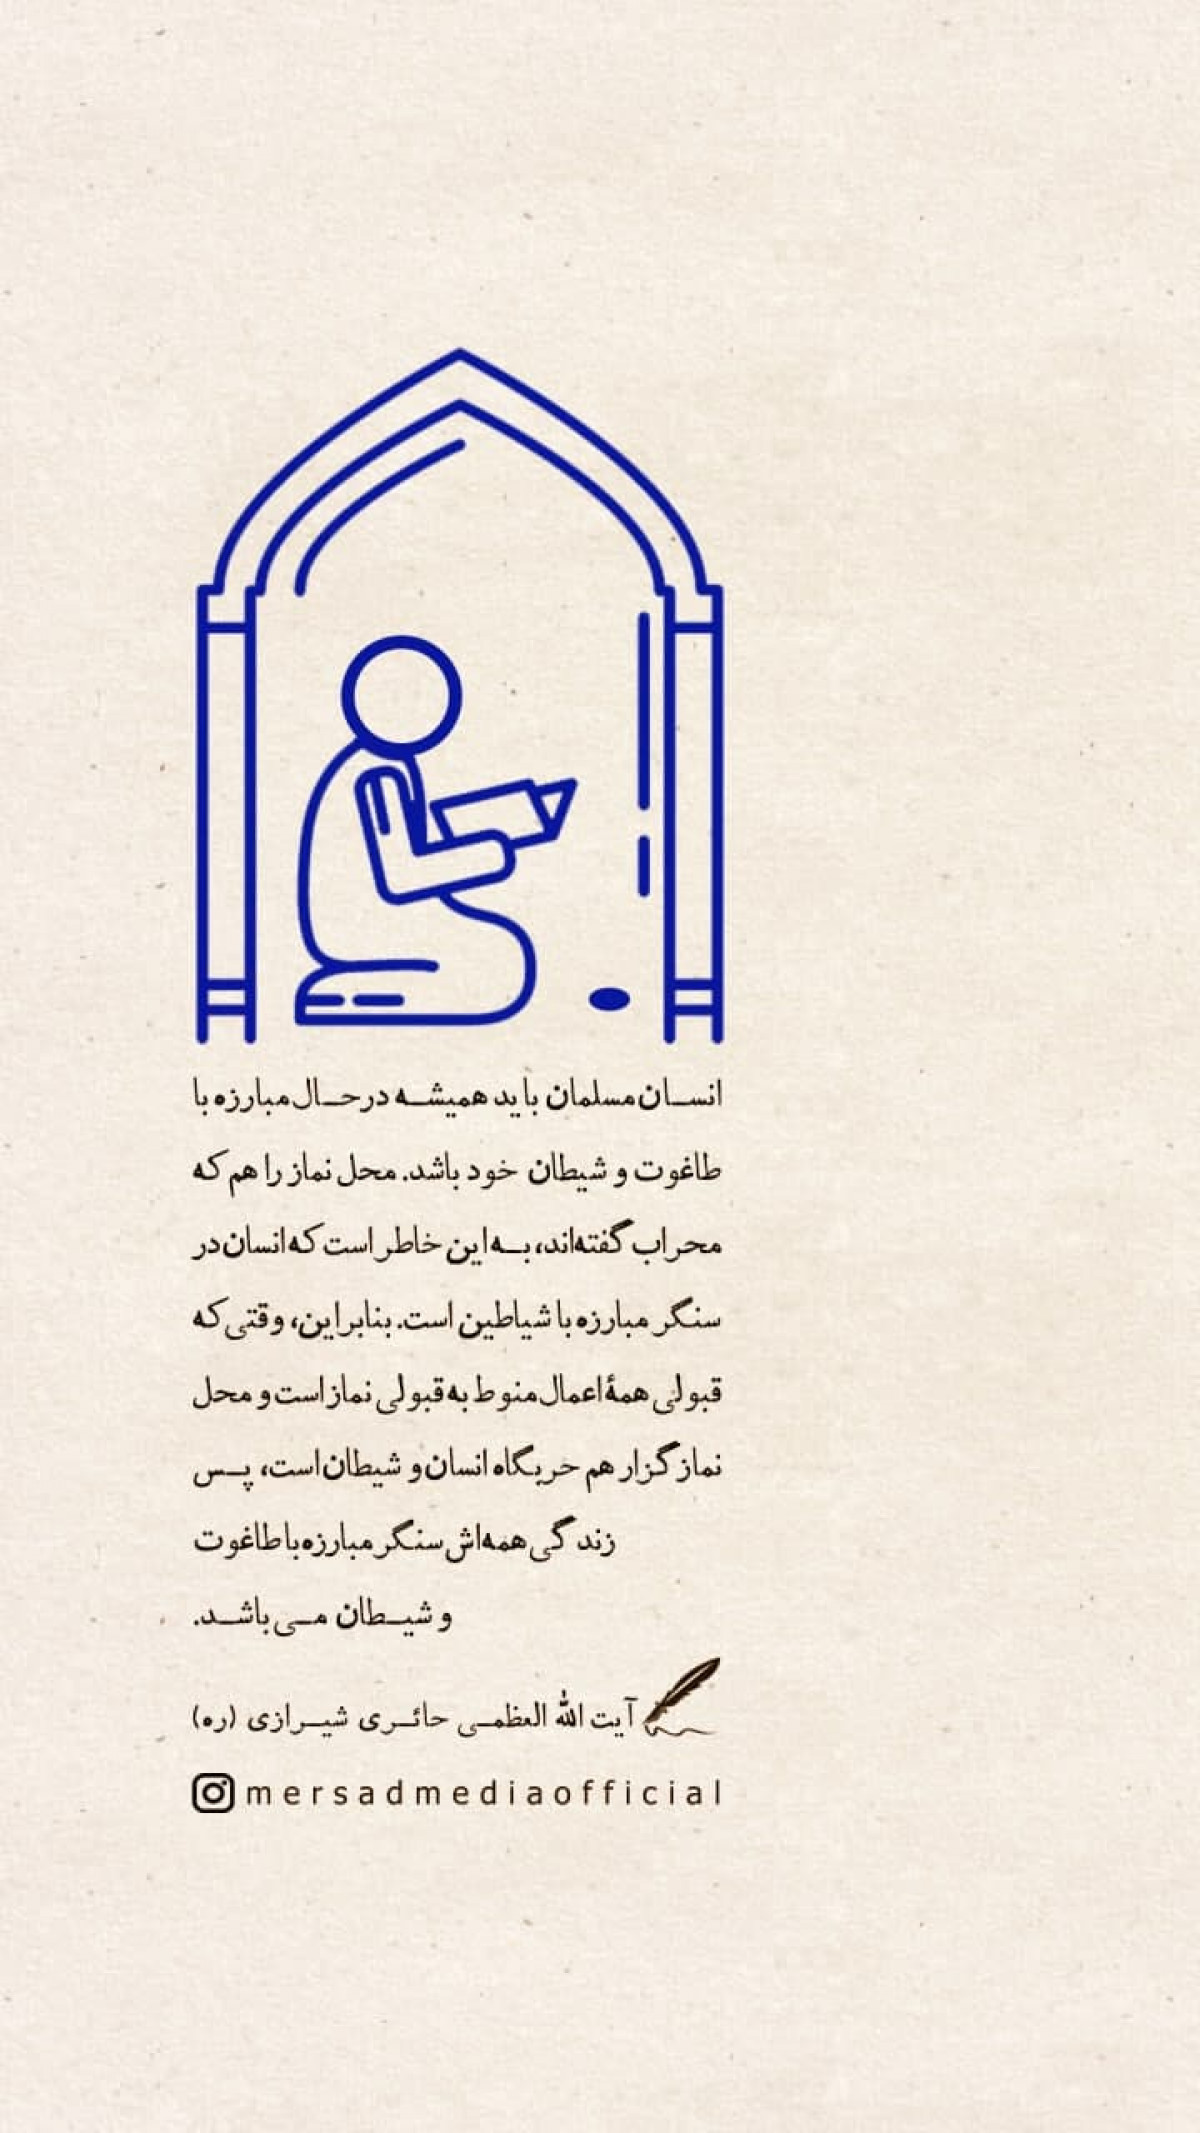 انسان مسلمان باید همیشه درحال مبارزه با
طاغوت و شیطان خود باشد. محل نماز را هم که
محراب گفته‌اند، به این خاطر است که انسان در
سنگر مبارزه با شیاطین است. بنابراین، وقتی که
قبولی همهٔ اعمال منوط به قبولی نماز است و محل
نمازگزار هم حربگاه انسان و شیطان است، پس
زندگی همه‌اش سنگر مبارزه با طاغوت
و شیطان می‌باشد.
آیت الله العظمی حائری شیرازی (ره)
mersadmediaofficial